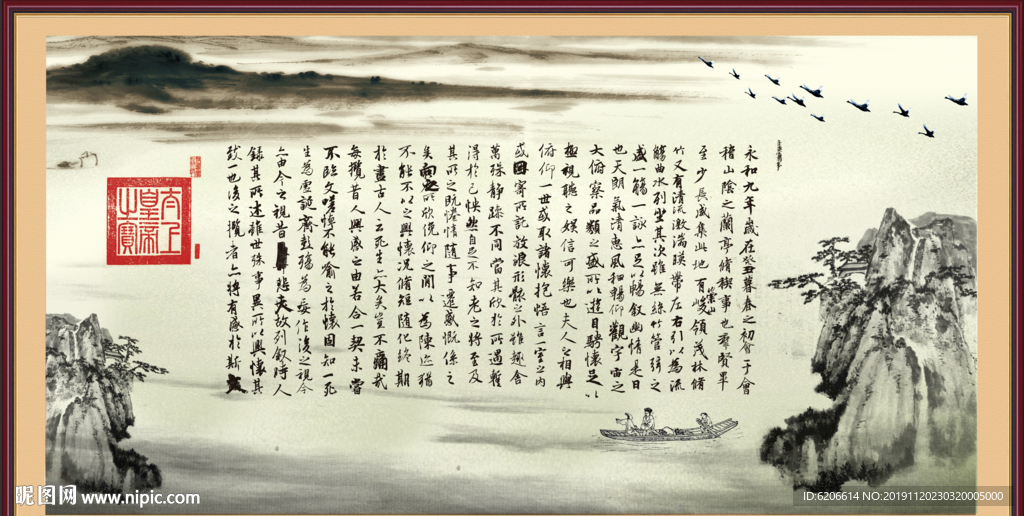 永和九年歲在癸丑暮春之初會于會
稽山陰之蘭亭脩稧事也群賢畢
至少長咸集此地有崇山峻領茂林脩
竹又有清流激湍暎帶左右引以為流
觴曲水列坐其次雖無絲竹管弦之
盛一觴一詠亦足以暢敘幽情是日
也天朗氣清惠風和暢仰觀宇宙之
大俯察品類之盛所以遊目騁懷足以
極視聽之娛信可樂也夫人之相與
俯仰一世或取諸懷抱悟言一室之內
或因寄所託放浪形骸之外雖趣舍
萬殊靜躁不同當其欣於所遇蹔
得於己怏然自足不知老之將至及
其所之既惓情隨事遷感慨係之
矣向之所欣俛仰之閒以為陳迹猶
不能不以之興懷況脩短隨化終期
於盡古人云死生亦大矣豈不痛哉
每攬昔人興感之由若合一契未嘗
不臨文嗟悼不能喻之於懷固知一死
生為虛誕齊彭殤為妄作後之視今
亦由今之視昔悲夫故列敘時人
錄其所述雖世殊事異所以興懷其
致一也後之攬者亦將有感於斯文
太上
皇帝
之寶
昵图网 www.nipic.com
ID:6206614 NO:20191120230320005000